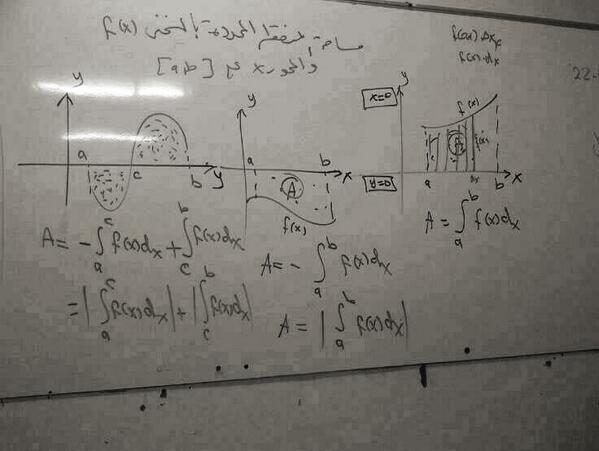 مساحة المنطقة المحدودة بالمنحنى f(x)
والمحور x في [a,b]
f(x)·Δx
f(x)·dx
22
y
a
c
b
y
y
a
b
x
A
f(x)
x=0
y=0
f(x)
a
b
x
A = -∫ₐᶜ f(x)dx + ∫_c^b f(x)dx
= |∫ₐᶜ f(x)dx| + |∫_c^b f(x)dx|
A = - ∫ₐᵇ f(x)dx
A = |∫ₐᵇ f(x)dx|
A = ∫ₐᵇ f(x)dx